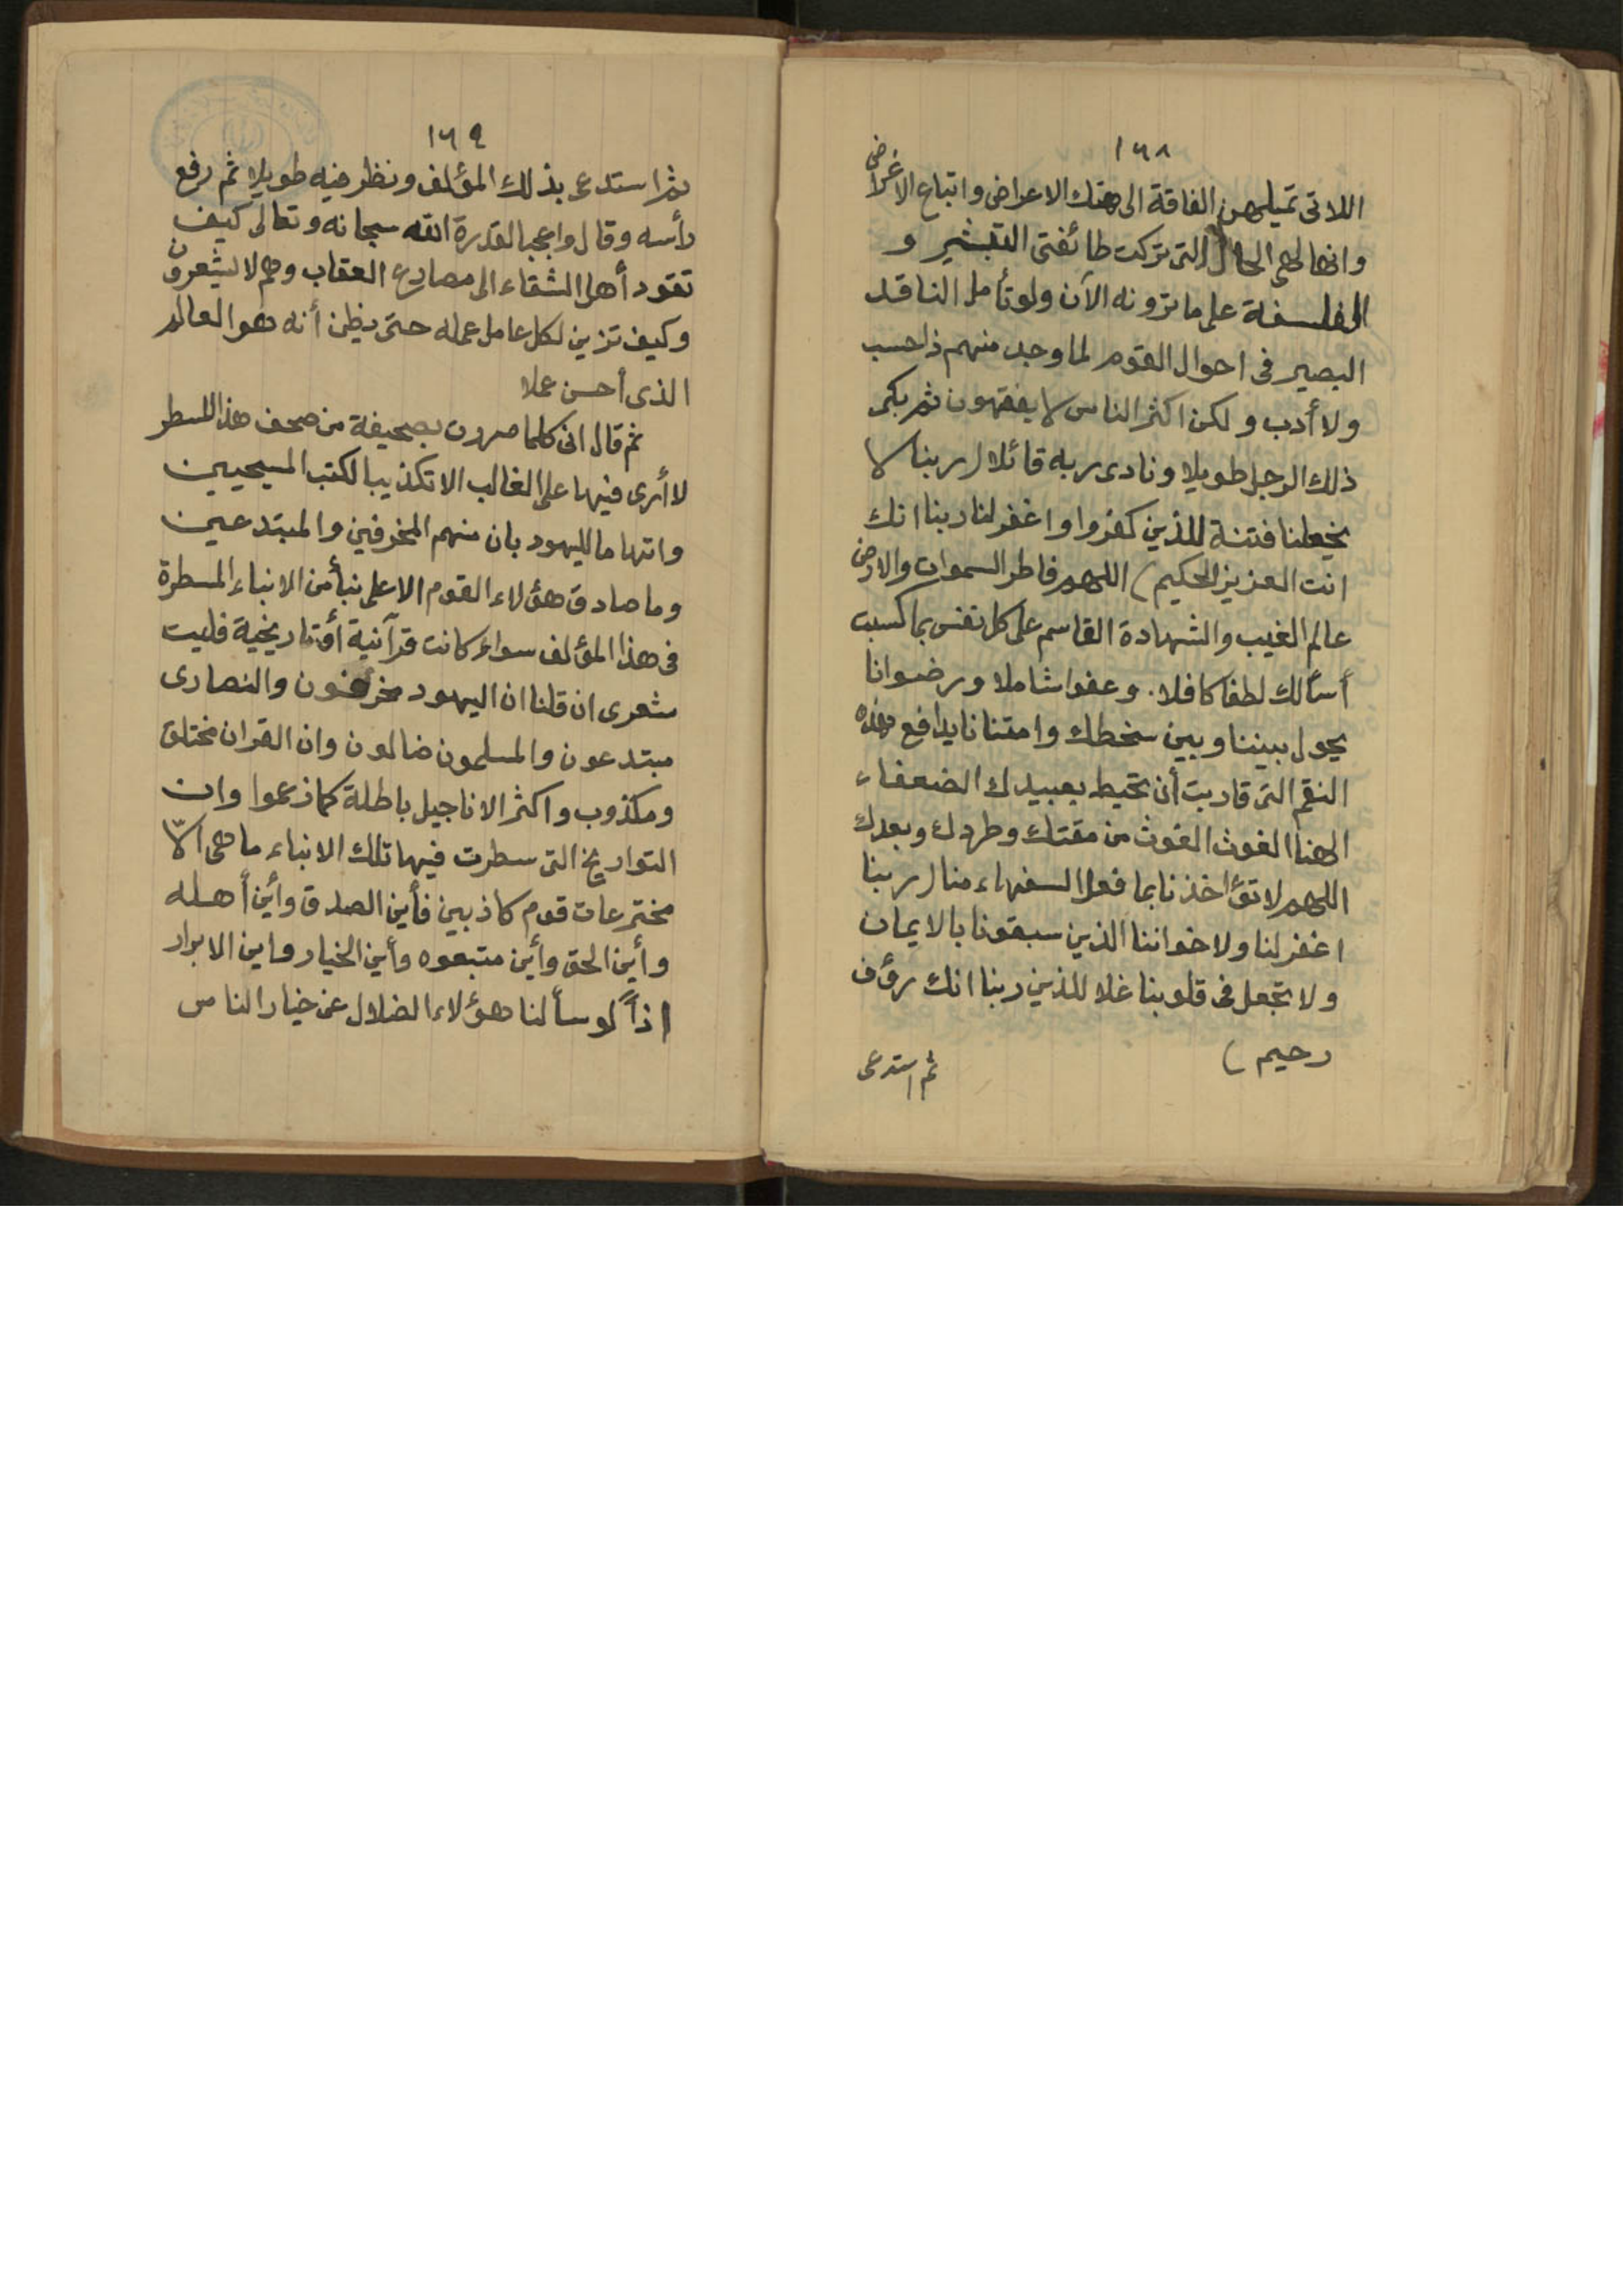 ١٦٨
اللاتى تميلهن الفاقة الى هتك الاعراض واتباع الاغراض
وانها لهى الحال التى تركت طائفتى التبشير و
الفلسفة على ما ترونه الآن ولو تأمل الناقد
البصير فى احوال القوم لما وجد منهم ذا حسب
ولا أدب ولكن اكثر الناس لا يفقهون ثم بكى
ذلك الرجل طويلا ونادى ربه قائلا (ربنا لا
تجعلنا فتنة للذين كفروا واغفر لنا ربنا انك
انت العزيز الحكيم) اللهم فاطر السموات والارض
عالم الغيب والشهادة القاسم على كل نفس بما كسبت
أسألك لطفا كافلا. وعفوا شاملا ورضوانا
يحول بيننا وبين سخطك وامتنانا يدافع هذه
النقم التى قاربت أن تحيط بعبيدك الضعفاء
الهنا الغوث الغوث من مقتك وطردك وبعدك
اللهم لا تؤاخذنا بما فعل السفهاء منا (ربنا
اغفر لنا ولاخواننا الذين سبقونا بالايمان
ولا تجعل فى قلوبنا غلا للذين ربنا انك رؤف
رحيم)
ثم استدعى
١٦٩
ثم استدعى بذلك المؤلف ونظر فيه طويلا ثم رفع
رأسه وقال واعجبا لقدرة الله سبحانه وتعالى كيف
تقود أهل الشقاء الى مصارع العقاب وهم لا يشعرون
وكيف تزين لكل عامل عمله حتى يظن أنه هو العالم
الذى أحسن عملا
ثم قال انى كلما مررت بصحيفة من صحف هذا المسطر
لا أرى فيها على الغالب الا تكذيبا لكتب المسيحيين
واتهاما لليهود بان منهم المخرفين والمبتدعين
وما صادق هؤلاء القوم الا على نبأ من الانباء المسطرة
فى هذا المؤلف سواء كانت قرآنية أو تاريخية فليت
شعرى ان قلنا ان اليهود مخرفون والنصارى
مبتدعون والمسلمون ضالون وان القران مختلق
ومكذوب واكثر الاناجيل باطلة كما زعموا وان
التواريخ التى سطرت فيها تلك الانباء ما هى الّا
مخترعات قوم كاذبين فأين الصدق وأين أهله
وأين الحق وأين متبعوه وأين الخيار واين الابرار
اذاً لو سألنا هؤلاء الضلال عن خيار الناس